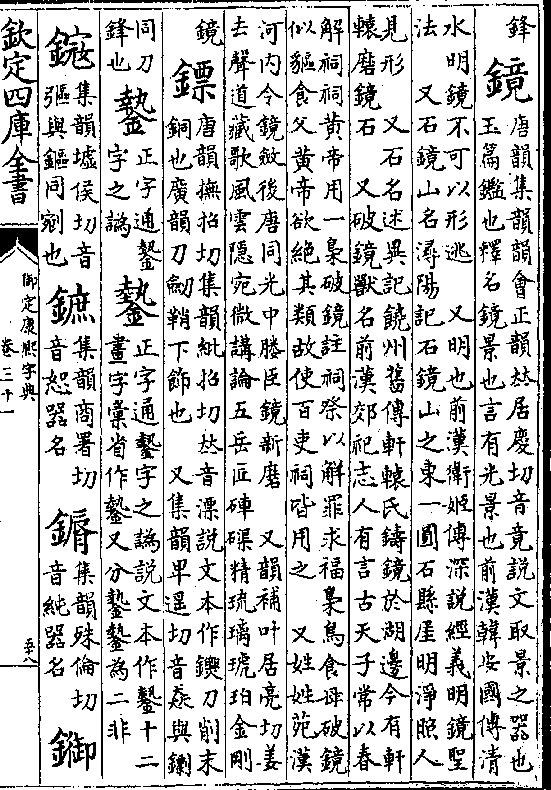 鋒
鏡
唐韻集韻韻會正韻𠀤居慶切音竟說文取景之器也
玉篇鑑也釋名鏡景也言有光景也前漢韓安國傳清
水明鏡不可以形逃　又明也前漢衛姬傳深說經義明鏡聖
法　又石鏡山名潯陽記石鏡山之東一圓石縣崖明淨照人
見形　又石名述異記饒州舊傳軒轅氏鑄鏡於湖邊今有軒
轅磨鏡石　又破鏡獸名前漢郊祀志人有言古天子常以春
解祠祠黃帝用一梟破鏡註祠祭以解罪求福梟鳥食母破鏡
似貙食父黃帝欲絕其類故使百吏祠皆用之　又姓姓苑漢
河内令鏡斂後唐同光中賸臣鏡新磨　又韻補叶居亮切姜
去聲道藏歌風雲隱宛微講論五岳匠硨磲精琉璃琥珀金剛
鏡
鏢
唐韻撫招切集韻紕招切𠀤音漂說文本作刀削末
銅也廣韻刀劒鞘下飾也　又集韻卑遥切音猋與
同刀
鋒也
正字通鏨
字之譌
正字通鏨字之譌說文本作鏨十二
畫字彙省作鏨又分為二非
集韻墟侯切音
彄與鏂同剜也
鏣
集韻商署切
音恕器名
集韻殊倫切
音純器名
欽定四庫全書
御定康熙字典
卷三十一